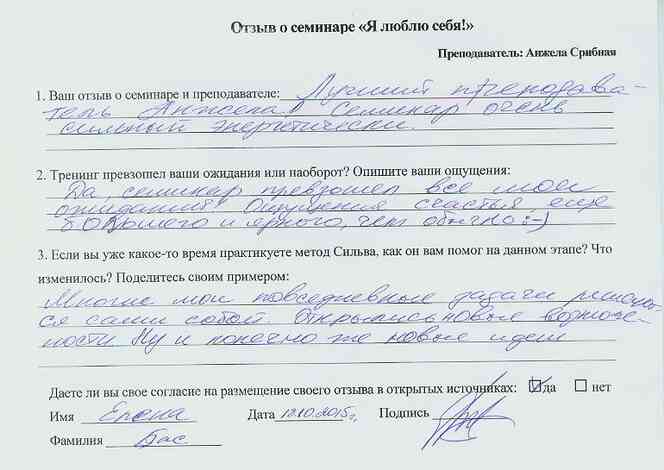 Отзыв о семинаре «Я люблю себя!»
Преподаватель: Анжела Срибная
1. Ваш отзыв о семинаре и преподавателе: Лучший преподава-
тель Анжела! Семинар очень
сильный энергетически.
2. Тренинг превзошел ваши ожидания или наоборот? Опишите ваши ощущения:
Да, семинар превзошел все мои
ожидания! Ощущения счастья, еще
большего и яркого, чем обычно :-)
3. Если вы уже какое-то время практикуете метод Сильва, как он вам помог на данном этапе? Что
изменилось? Поделитесь своим примером:
Многие мои повседневные задачи решают-
ся сами собой. Открылись новые возможно-
ности Ну и конечно же новые идеи
Даете ли вы свое согласие на размещение своего отзыва в открытых источниках: да нет
Имя Елена Дата 12.10.2015г. Подпись
Фамилия Бас